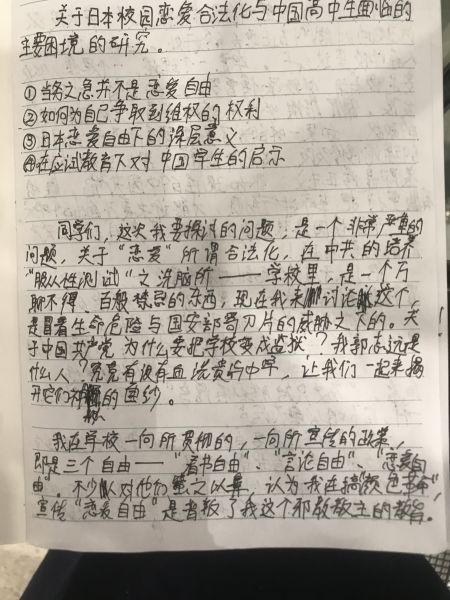 关于日本校园恋爱合法化与中国高中生面临的
主要困境的研究。
①当务之急并不是恋爱自由
②如何为自己争取到维权的权利
③日本恋爱自由下的深层意义
④在应试教育下对中国学生的启示
同学们，这次我要探讨的问题，是一个非常严重的
问题，关于“恋爱”所谓合法化，在中共的培养
“服从性测试”之洗脑所——学校里，是一个万
聊不得、百般禁忌的东西，现在我来讨论这个，
是冒着生命危险与国安部哥刀片的威胁之下的。关
于中国共产党为什么要把学校变成监狱？我郭志远是
什么人？究竟有没有血洗黄的中学，让我们一起来揭
开它们神秘的面纱。
我在学校一向所贯彻的，一向所宣传的政策，
即是三个自由——“看书自由”、“言论自由”、“恋爱自
由”。不少人对他们嗤之以鼻，认为我在搞“颜色革命”，
宣传“恋爱自由”是背叛了我这个邪教教主的教旨。